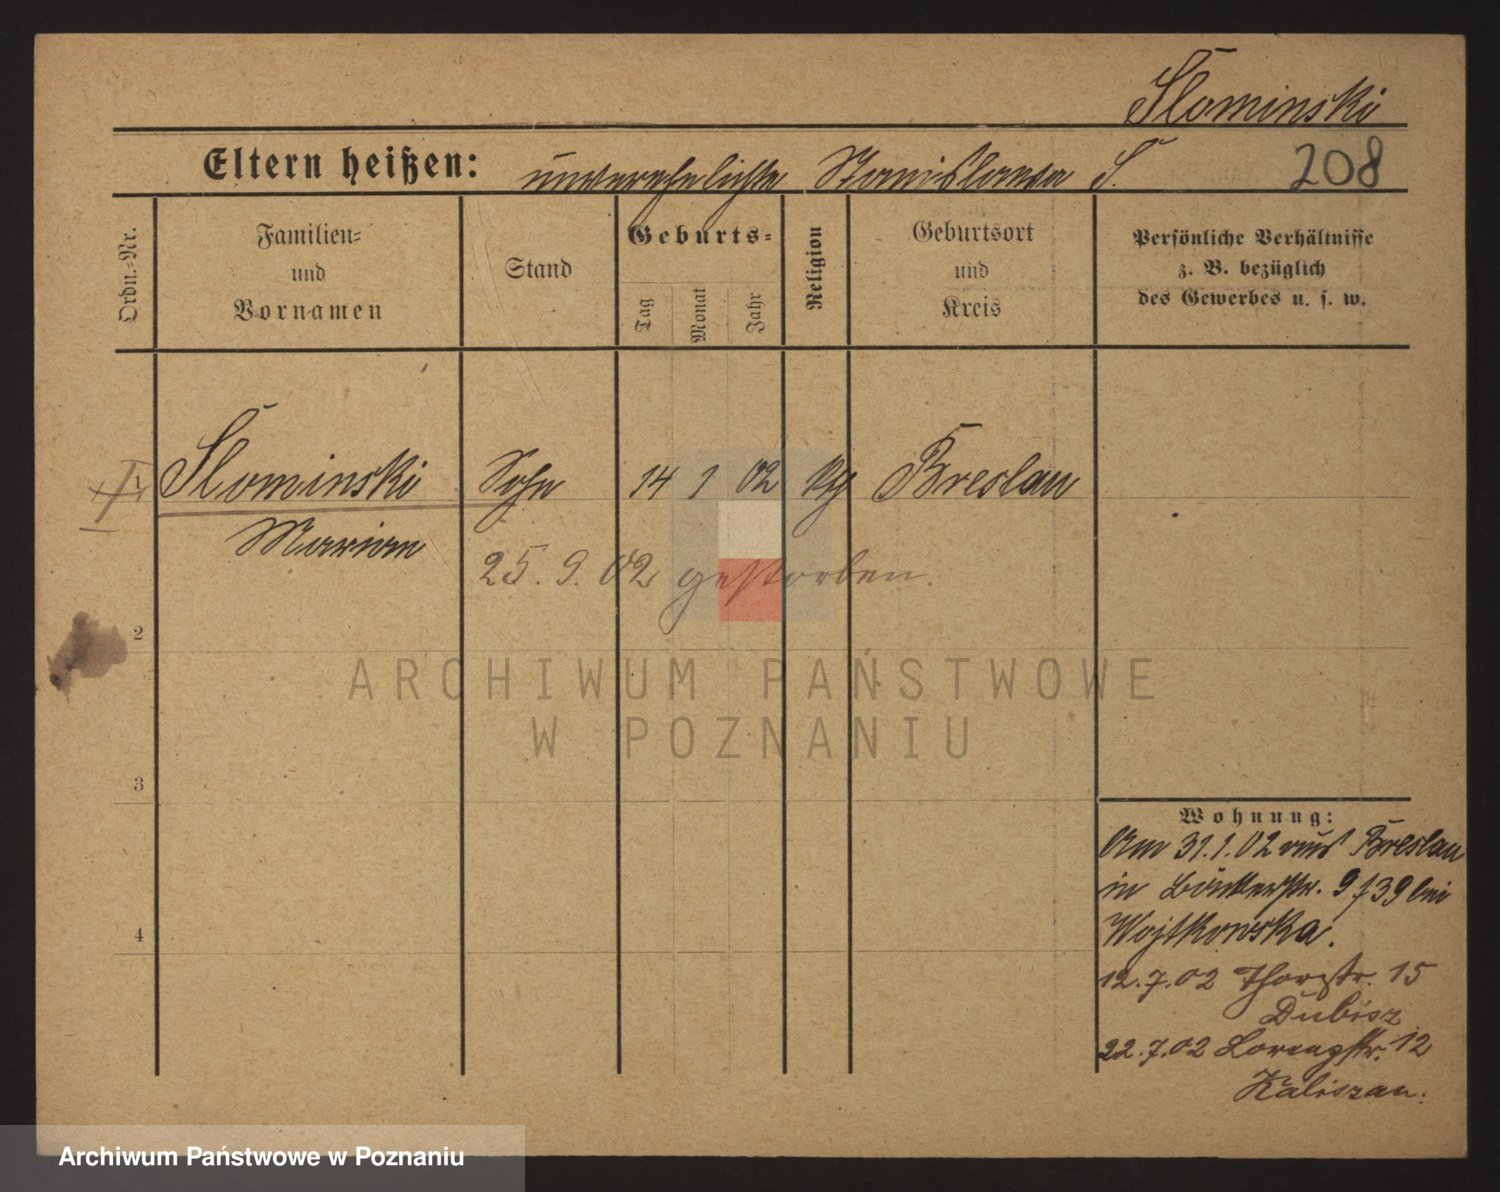 Slominski
Eltern heißen: unverehelichte Stanislawa S.
208
Ordn.-Nr.
Familien-
und
Vornamen
Stand
Geburts-
Tag
Monat
Jahr
Religion
Geburtsort
und
Kreis
Persönliche Verhältnisse
z. B. bezüglich
des Gewerbes u. s. w.
1 Slominski Sohn 14 1 02 Breslau
Marian
25. 9. 02 gestorben.
2
3
4
ARCHIWUM PAŃSTWOWE
W POZNANIU
Wohnung:
Am 31.1.02 aus Breslau
in 9 39 bei
Wojtkowska.
12.7.02 Thorstr. 15
Dubisz
22.7.02 12
Kaliszan.
Archiwum Państwowe w Poznaniu